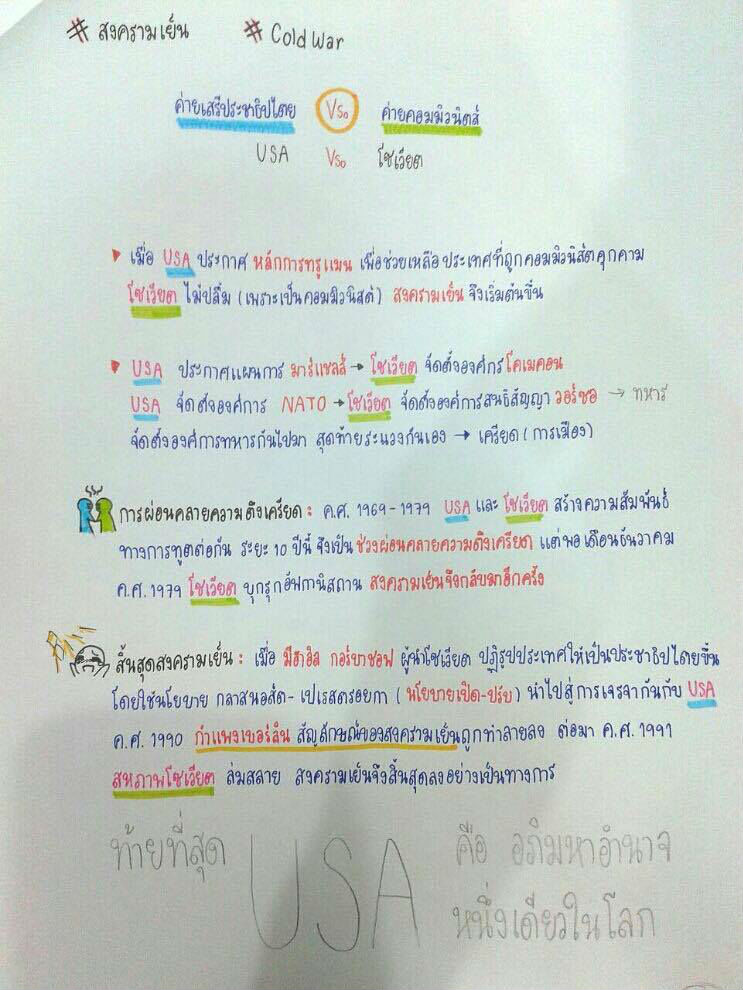 # สงครามเย็น # Cold War
ค่ายเสรีประชาธิปไตย Vs. ค่ายคอมมิวนิตส์
USA Vs. โซเวียต
เมื่อ USA ประกาศ หลักการทรูแมน เพื่อช่วยเหลือประเทศที่ถูกคอมมิวนิสต์คุกคาม
โซเวียต ไม่ปลื้ม (เพราะเป็นคอมมิวนิสต์) สงครามเย็น จึงเริ่มต้นขึ้น
USA ประกาศแผนการ มาร์แชลล์ → โซเวียต จัดตั้งองค์กร โคเมคอน
USA จัดตั้งองค์การ NATO → โซเวียต จัดตั้งองค์การสนธิสัญญา วอร์ซอ → ทหาร
จัดตั้งองค์การทหารกันไปมา สุดท้ายระแวงกันเอง → เครียด (การเมือง)
การผ่อนคลายความตึงเครียด : ค.ศ. 1969 - 1979 USA และ โซเวียต สร้างความสัมพันธ์
ทางการทูตต่อกัน ระยะ 10 ปีนี้ จึงเป็นช่วงผ่อนคลายความตึงเครียด แต่พอเดือนธันวาคม
ค.ศ. 1979 โซเวียต บุกรุกอัฟกานิสถาน สงครามเย็นจึงกลับมาอีกครั้ง
สิ้นสุดสงครามเย็น : เมื่อ มิฮาอิล กอร์บาชอฟ ผู้นำโซเวียต ปฏิรูปประเทศให้เป็นประชาธิปไตยขึ้น
โดยใช้นโยบาย กลาสนอสต์ - เปเรสตรอยกา (นโยบายเปิด-ปรับ) นำไปสู่การเจรจากันกับ USA
ค.ศ. 1990 กำแพงเบอร์ลิน สัญลักษณ์ของสงครามเย็นถูกทำลายลง ต่อมา ค.ศ. 1991
สหภาพโซเวียต ล่มสลาย สงครามเย็นจึงสิ้นสุดลงอย่างเป็นทางการ
ท้ายที่สุด USA คือ อภิมหาอำนาจ
หนึ่งเดียวในโลก